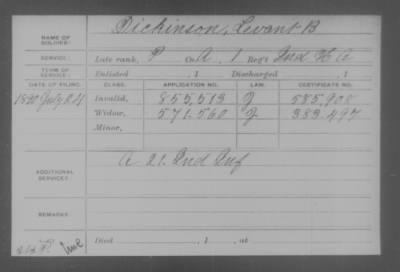 NAME OF SOLDIER: Dickinson, Levant B
SERVICE: Late rank, P Co. A, 1 Reg't Ind H A
TERM OF SERVICE: Enlisted , 1 Discharged , 1
DATE OF FILING. CLASS. APPLICATION NO. LAW. CERTIFICATE NO.
1890 July Invalid, 855,513 585,908
Widow, 571,560 383,497
Minor,
ADDITIONAL SERVICES: A 21. Ind Inf
REMARKS:
Died , 1 , at